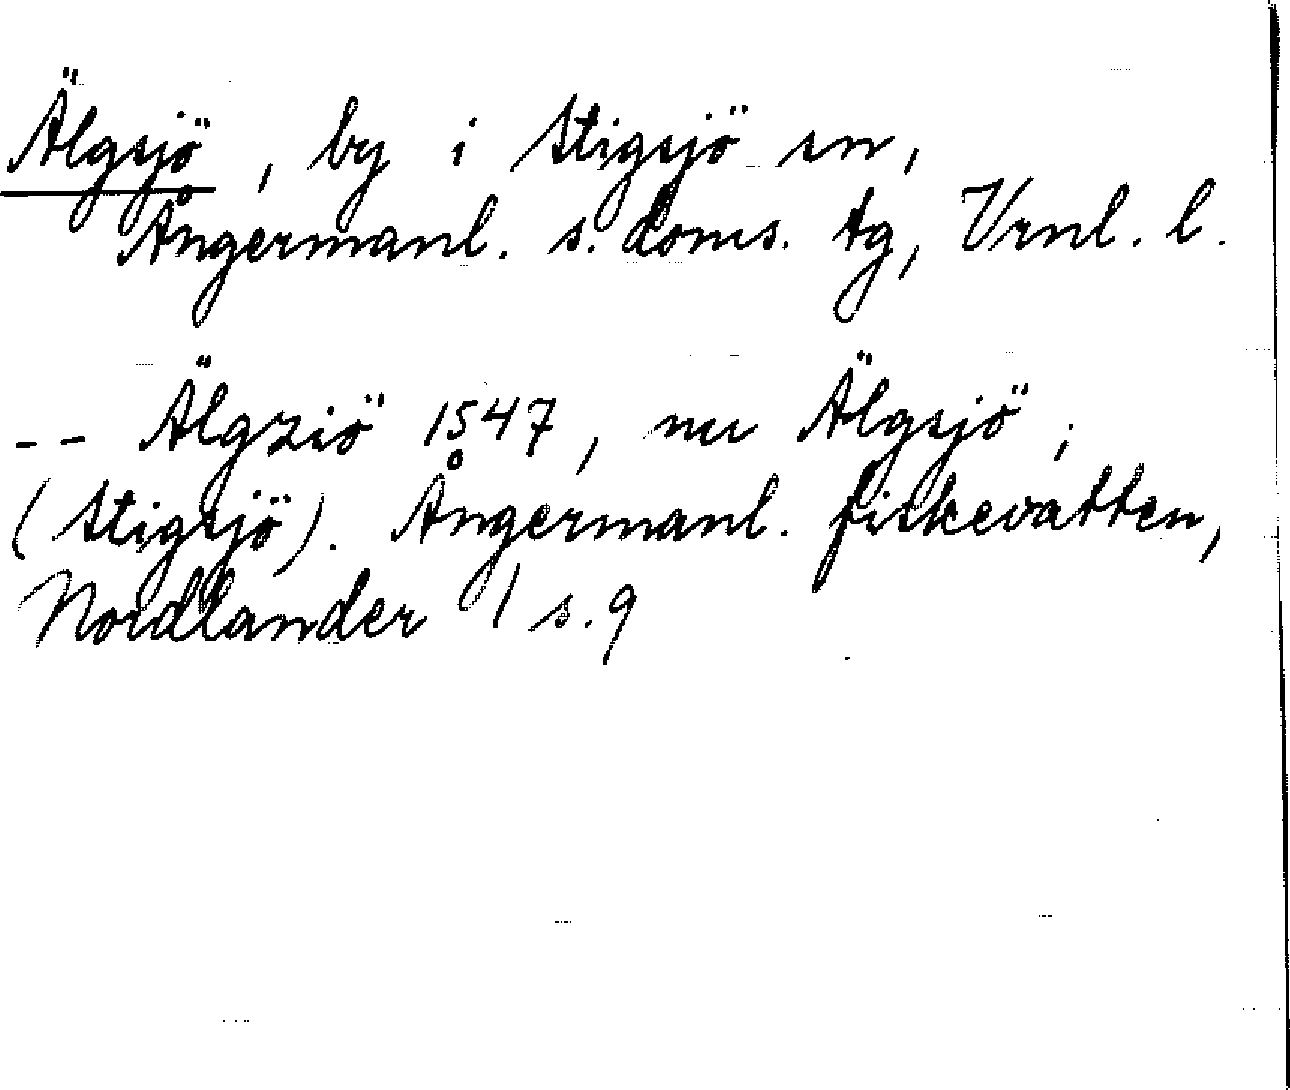 Älgsjö, by i Stigsjö sn,
Ångermanl. s. doms. tg, Vrnl. l.
-- Älgziö 1547, nu Älgsjö;
(Stigsjö). Ångermanl. fiskevatten,
Nordlander 1 s. 9